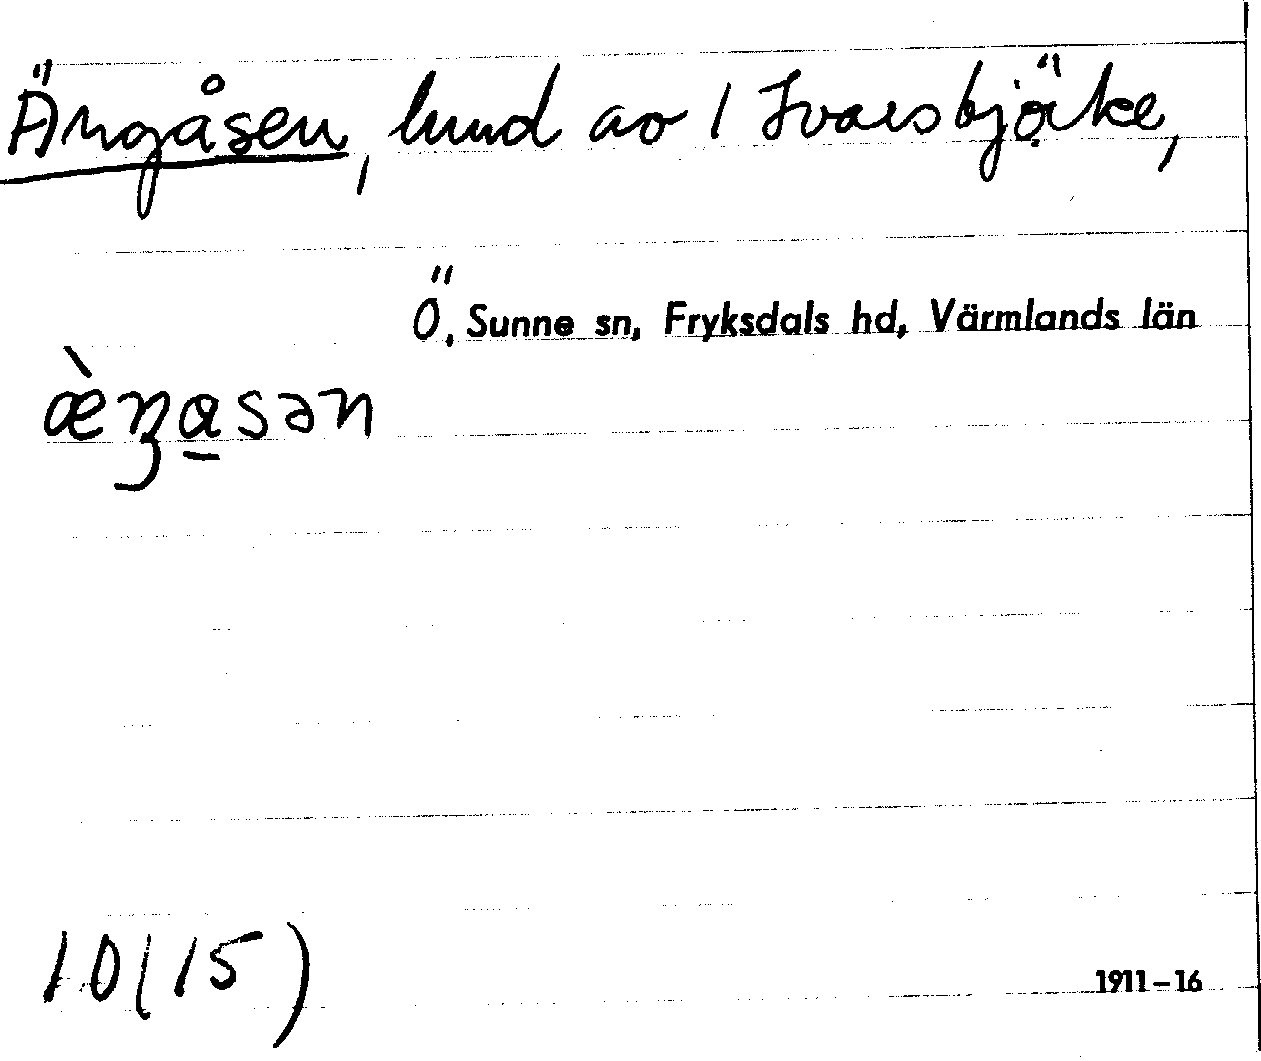 Ängåsen, lund av 1 Ivarsbjörke,
Ö, Sunne sn, Fryksdals hd, Värmlands län
æ̀ŋa̲sən
10(15)
1911–16